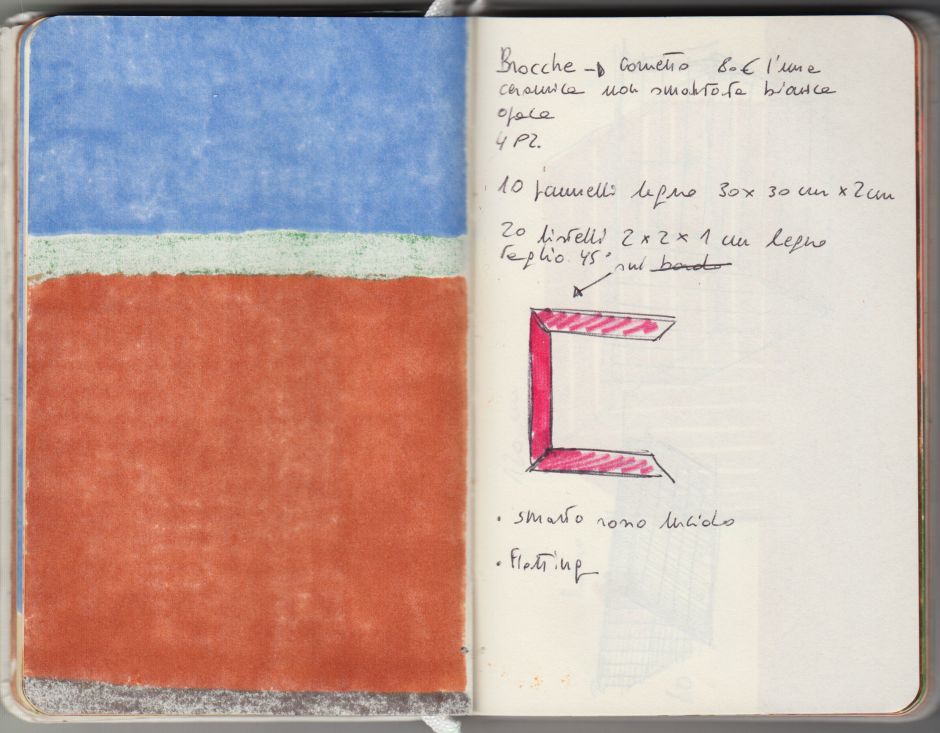 Brocche → Cometto 80€ l'una
ceramica non smaltata bianca
opaca
4 PZ.
10 pannelli legno 30 x 30 cm x 2 cm
20 listelli 2 x 2 x 1 cm legno
taglio 45° sul bordo
• smalto rosso lucido
• Flatting